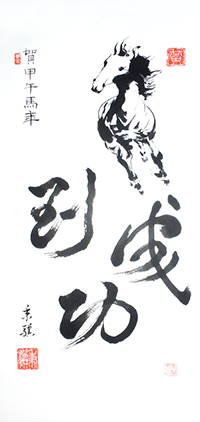 賀甲午馬年
到
成
功